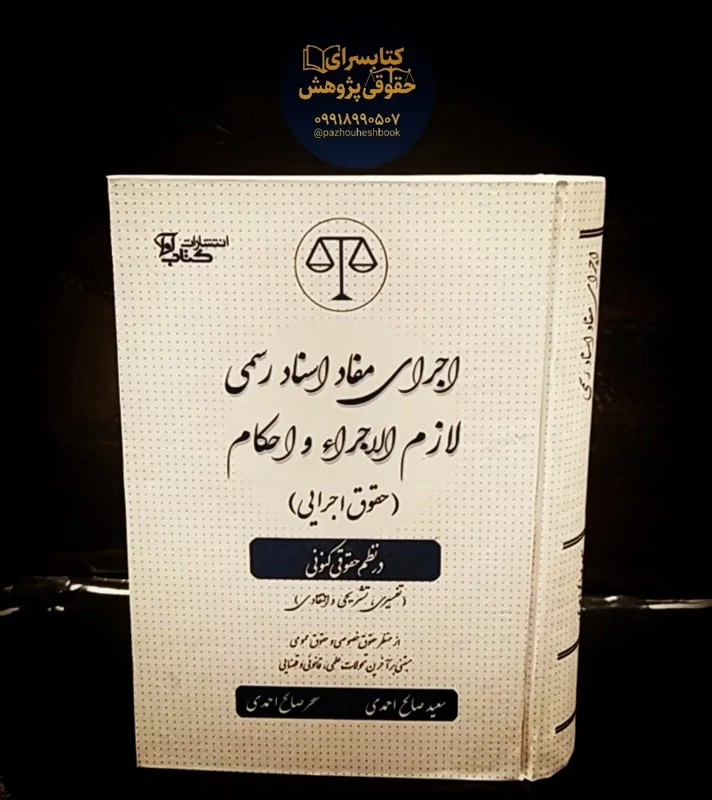 کتابسرای
حقوقی پژوهش
۰۹۹۱۸۹۹۰۵۰۷
@pazhouheshbook
انتشارات
کتاب آوا
اجرای مفاد اسناد رسمی
لازم الاجراء و احکام
(حقوق اجرایی)
در نظم حقوقی کنونی
(تفسیری، تشریحی و انتقادی)
از منظر حقوق خصوصی و حقوق عمومی
مبتنی بر آخرین تحولات علمی، قانونی و قضایی
سعید صالح احمدی سحر صالح احمدی
اجرای مفاد اسناد رسمی